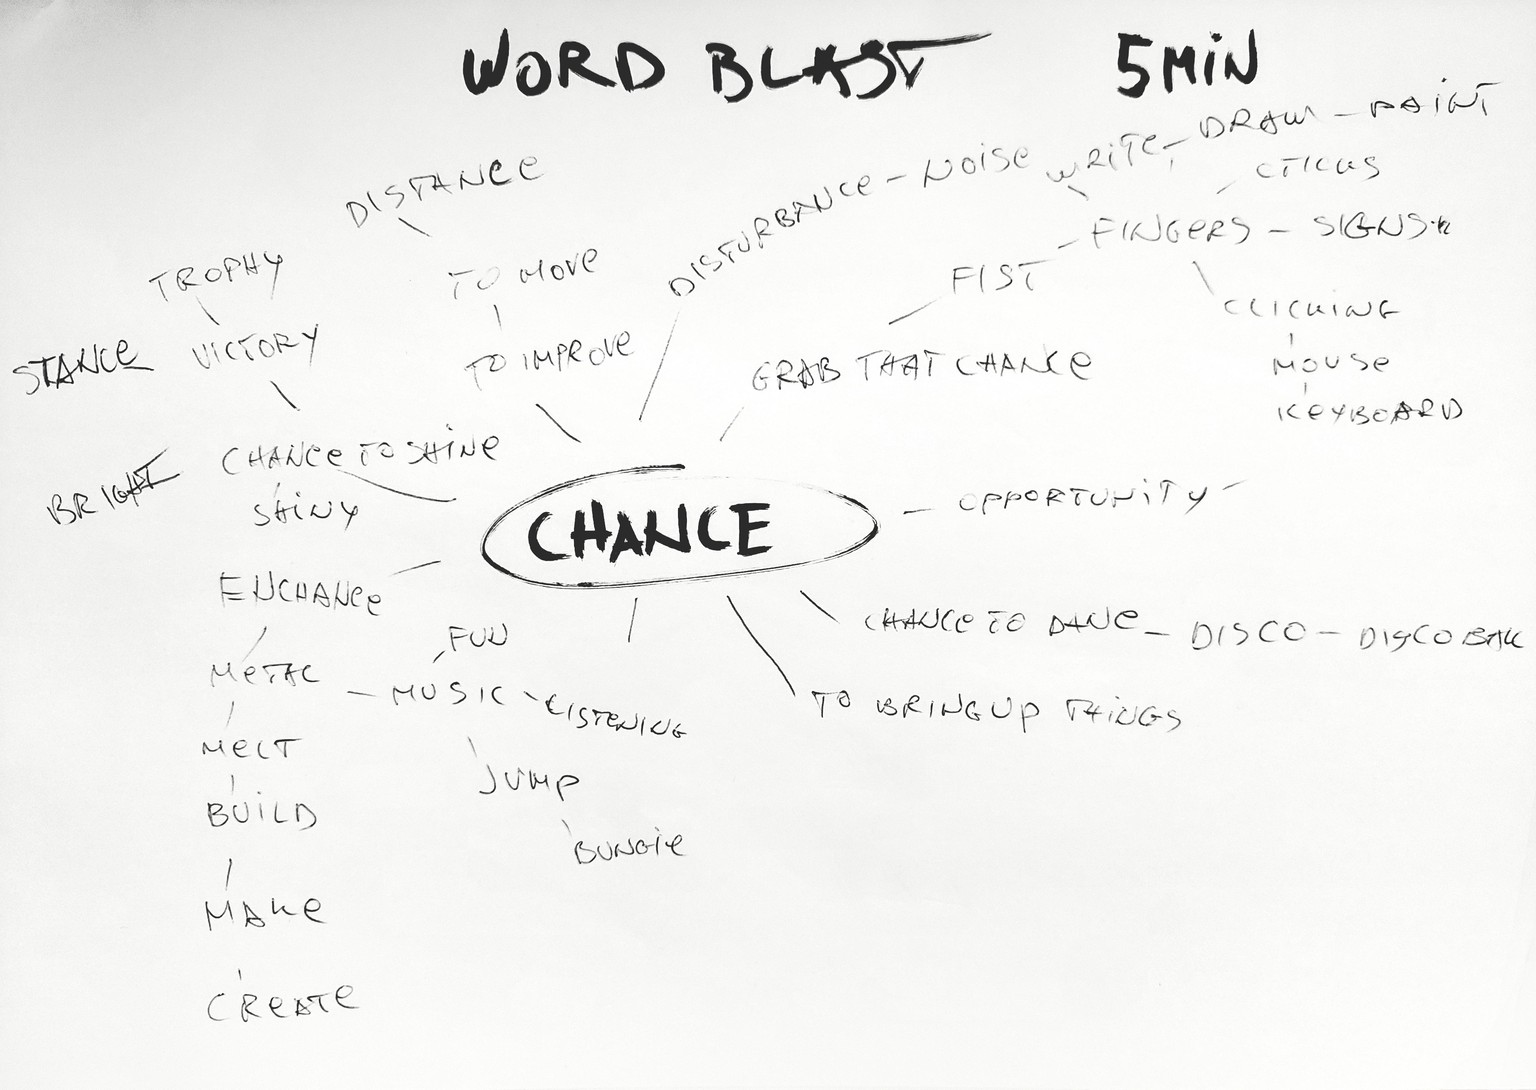 WORD BLAST 5 MiN
WRiTe - DRAW - PAiNT
DISTANCE
DISTURBANCe - NOiSe
FINGeRS - SIGNS
TROPHY
TO MOVe
FIST
CLICKiNG
STANCe
VICTORY
TO IMPROVe
GRAB THAT CHANCe
MOUSe
KeYBOARD
CHANCe TO SHiNe
BRIGHT
SHiNY
OPPORTUNiTY
CHANCE
ENCHANCe
CHANCe TO DANCe - DISCO - DISCO BALL
FUN
MeTAL - MUSIC - LISTENING
TO BRING UP THiNGS
MeLT
JUMP
BUiLD
BUNGIe
MAKe
CReATe